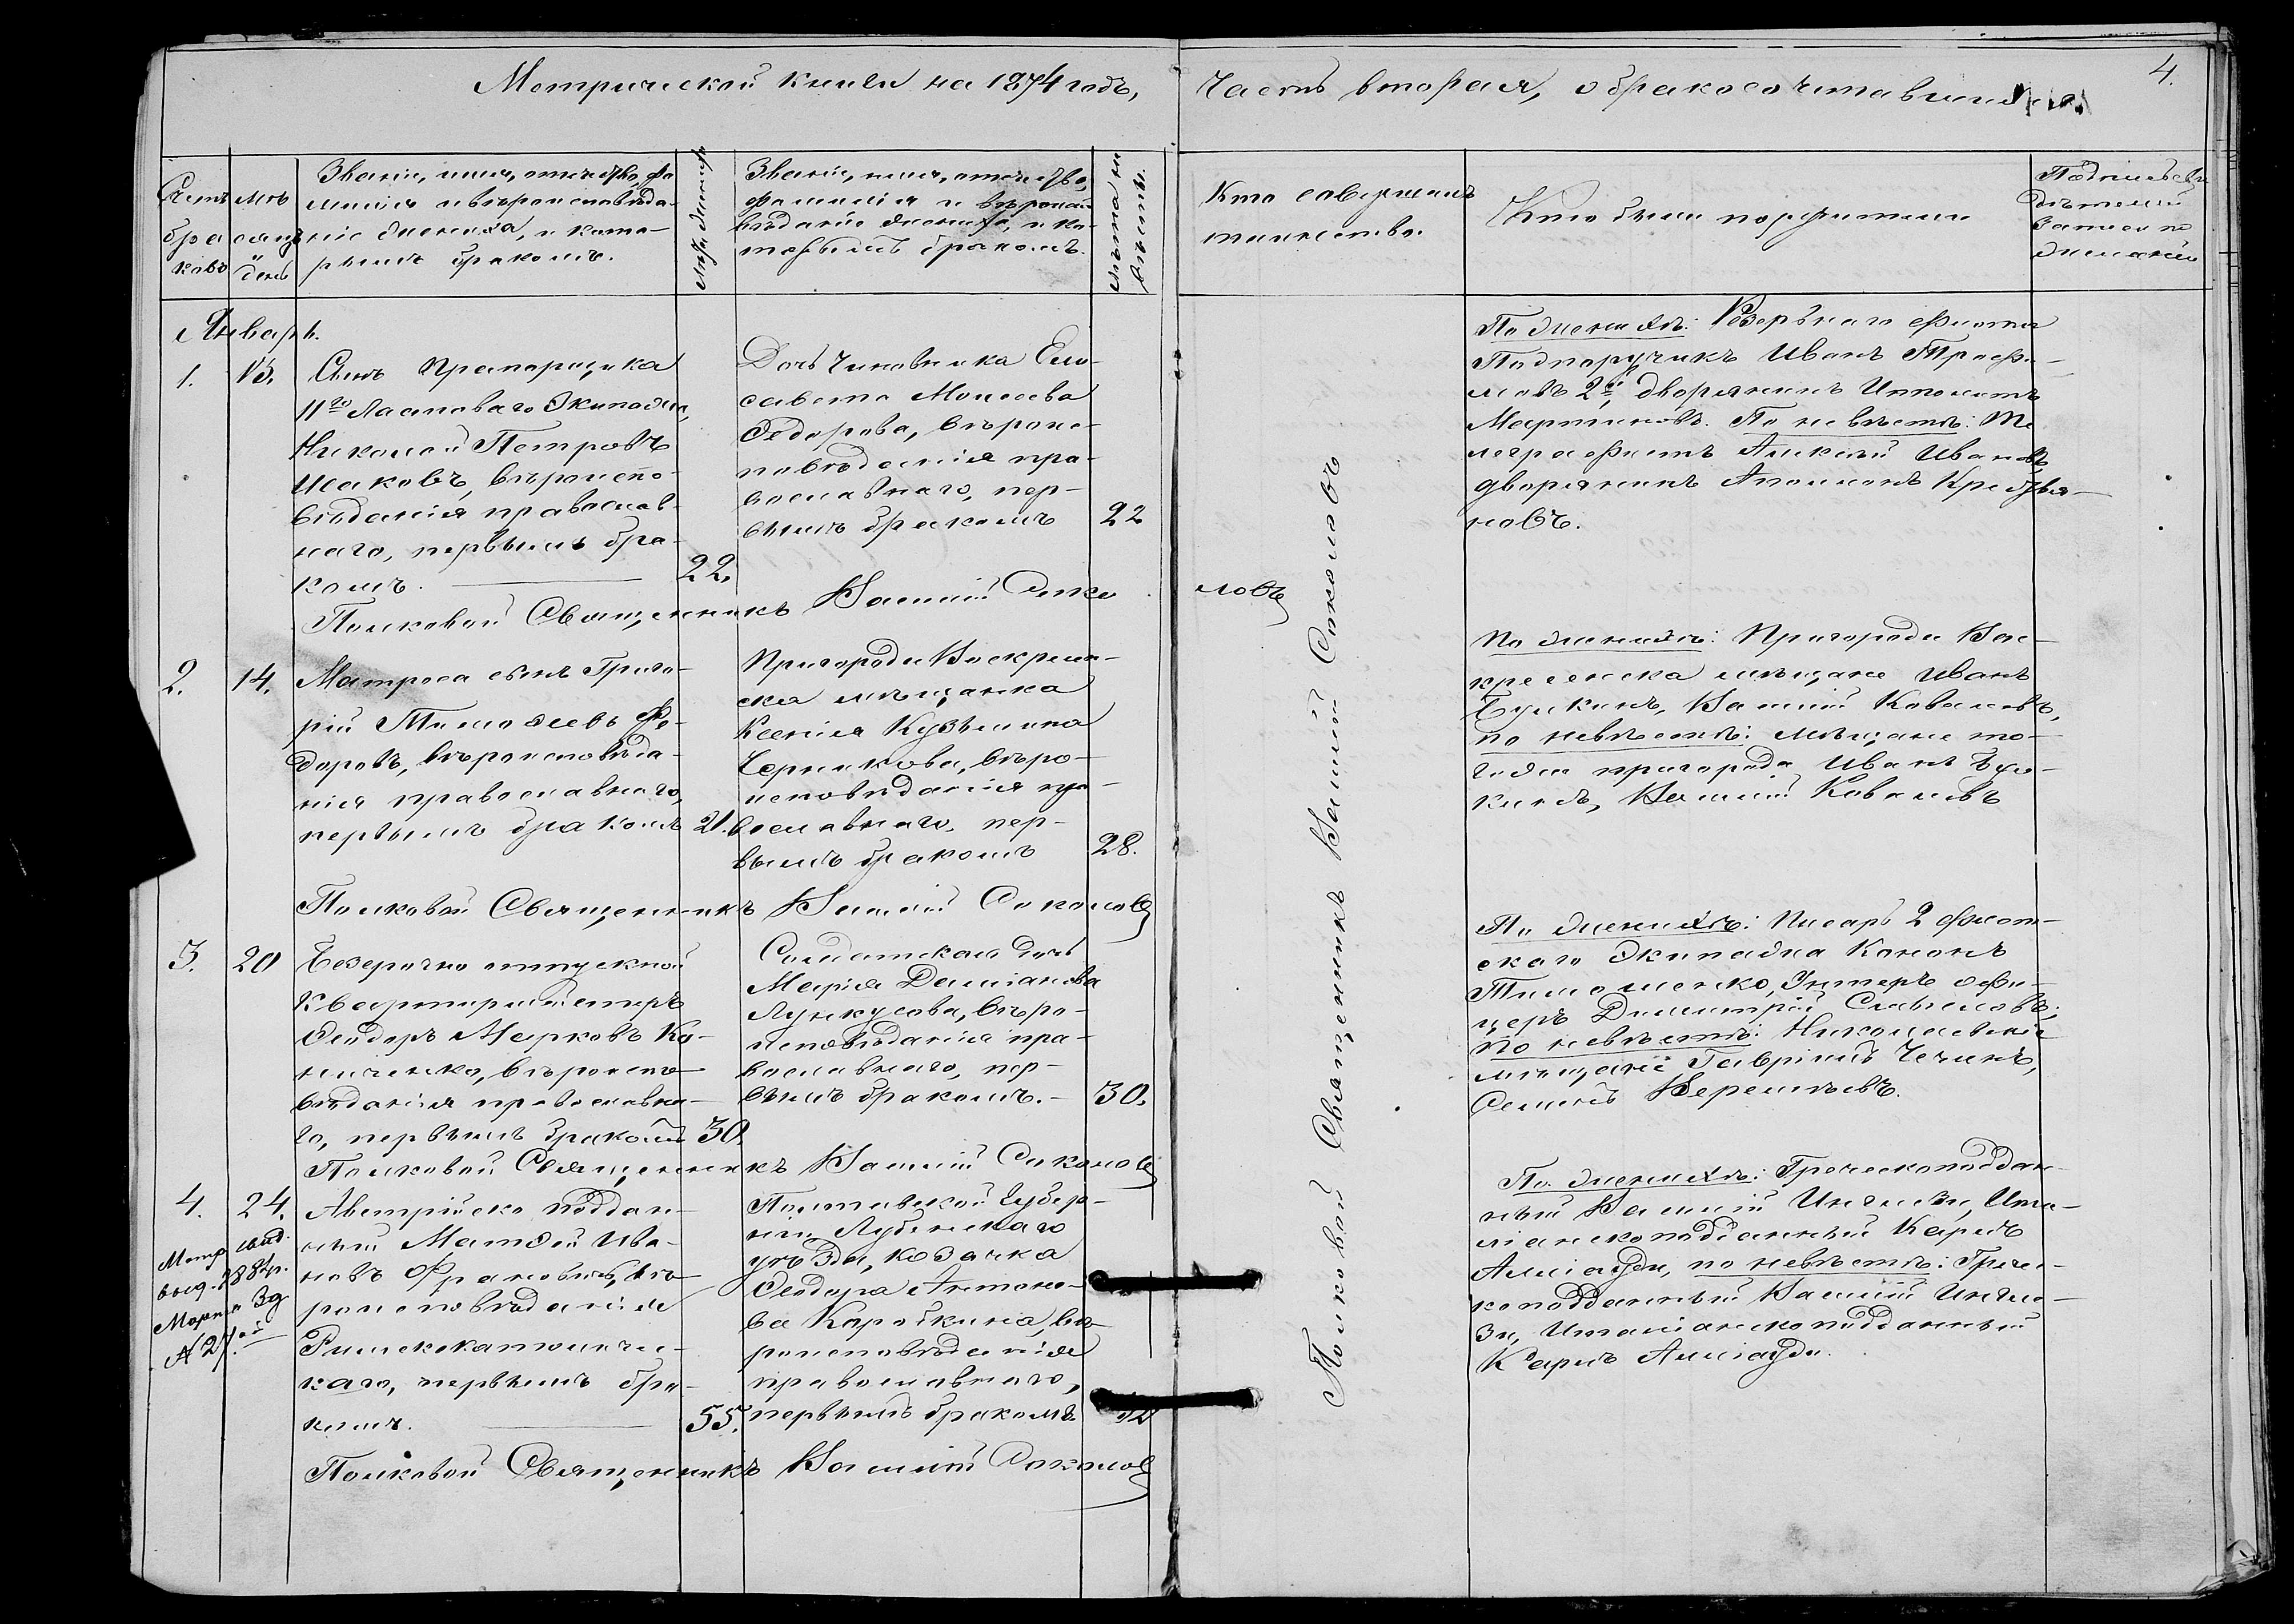 Метрической книги на 1874 годъ,
Часть вторая, о бракосочетавшихся.
4.
Счетъ браковъ
Мѣсяцъ и день
Званіе, имя, отчество, фа-
милія и вѣроисповѣда-
ніе жениха, и кото-
рымъ бракомъ.
Лѣта жениха
Званіе, имя, отчество,
фамилія и вѣроиспо-
вѣданіе невѣсты, и ко-
торымъ бракомъ.
Лѣта не
вѣсты.
Кто совершалъ
таинство.
Кто были поручители
Подпись сви
дѣтелей
записи по
желанію
Январь.
1.
13.
Сынъ Прапорщика
11го Ластоваго Экипажа,
Николай Петровъ
Исаковъ, вѣроиспо-
вѣданія православ-
наго, первымъ бра-
комъ.
22.
Дочь Чиновника Ели-
савета Моисеева
Федорова, вѣроис-
повѣданія пра-
вославнаго, пер-
вымъ бракомъ
22
Полковой Священникъ Василій Соко
ловъ
По женихѣ: Резервнаго флота
Подпоручикъ Иванъ Трофи-
мовъ 2й, дворянинъ Ипполитъ
Мартиновъ. По невѣстѣ: Те
леграфистъ Алексѣй Ивановъ,
дворянинъ Аполлонъ
новъ.
2.
14.
Матроса сынъ Григо-
рій Тимоѳеевъ Фе-
доровъ, вѣроисповѣда-
нія православнаго,
первымъ бракомъ
21.
Пригорода Воскресен-
ска мѣщанка
Ксенія Кузьмина
Черникова, вѣро-
исповѣданія пра-
вославнаго, пер-
вымъ бракомъ
28.
Полковой Священникъ Василій Соколовъ
По женихѣ: Пригорода Вос-
кресенска мѣщане Иванъ
Булкинъ, Василій Ковалевъ,
по невѣстѣ: мѣщане то-
гоже пригорода Иванъ Бул-
кинъ, Василій Ковалевъ
3.
20
Безсрочно отпускной
Квартирмистръ
Ѳеодоръ Марковъ Ко-
ниченко, вѣроиспо-
вѣданія православна-
го, первымъ бракомъ
30.
Солдатская дочь
Марія Даміанова
Лункусова, вѣро-
исповѣданія пра-
вославнаго, пер-
вымъ бракомъ.
30.
Полковой Священникъ Василій Соколовъ
По женихѣ: Писарь 2 флот-
скаго Экипажа Кононъ
Тимошенко, Унтеръ офи-
церъ Димитрій
по невѣстѣ: Николаевскіе
мѣщане Гавріилъ Чечинъ,
Семенъ Веремѣевъ.
4.
24.
Метр. свид.
выд. 1884 г.
Марта 3д
№ 27.
Австрійско поддан-
ный Матѳей Ива-
новъ Франовичъ, вѣ-
роисповѣданія
Римскокатоличес-
каго, первымъ бра-
комъ.
55.
Полтавской Губер-
ніи Лубенскаго
уѣзда, козачка
Ѳеодора Антоно-
ва Каройкина, вѣ-
роисповѣданія
православнаго,
первымъ бракомъ
Полковой Священникъ Василій Соколовъ
По женихѣ: Греческоподдан-
ный Василій Инглези, Ита-
ліанскоподданный Карлъ
Амаяуди, по невѣстѣ: Гречес-
коподданный Василій Ингле-
зи, Италіанскоподданный
Карлъ Амаяуди.
Полковой Священникъ Василій Соколовъ